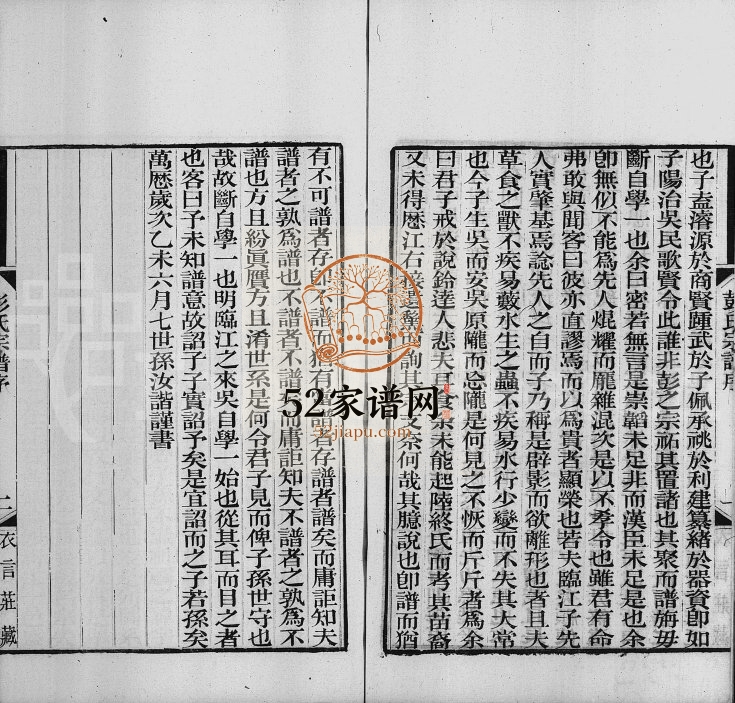 也子盍濬源於商賢踵武於子佩承祧於利建纂緒於器資卽如
子陽治吳民歌賢令此誰非彭之宗祏其置諸也其聚而譜旃毋
斷自學一也余曰密若無言是崇韜未足非而漢臣未足是也余
卽無似不能爲先人焜耀而龐雜混次是以不孝令也雖君有命
弗敢與聞客曰彼亦直謬焉而以爲貴者顯榮也若夫臨江子先
人實肇基焉諗先人之自而子乃稱是辟影而欲離形也者且夫
草食之獸不疾易藪水生之蟲不疾易水行少變而不失其大常
也今子生吳而安吳原隴而忘隴是何見之不恢而斤斤者爲余
曰君子戒於說鈴達人悲夫耳食余未能起陸終氏而考其苗裔
又未得歷江右 詢其 奈何哉其臆說也卽譜而猶
有不可譜者存卽不譜而猶有 譜者存譜矣而庸詎知夫
譜者之孰爲譜也不譜者不譜 而庸詎知夫不譜者之孰爲不
譜也方且紛眞贋方且淆世系是何令君子見而俾子孫世守也
哉故斷自學一也明臨江之來吳自學一始也從其耳而目之者
也客曰予未知譜意故詔子子實詔予矣是宜詔而之子若孫矣
萬曆歲次乙未六月七世孫汝諧謹書
彭氏宗譜序
一
彭氏宗譜序
二
衣言莊藏
52家谱网
52jiapu.com